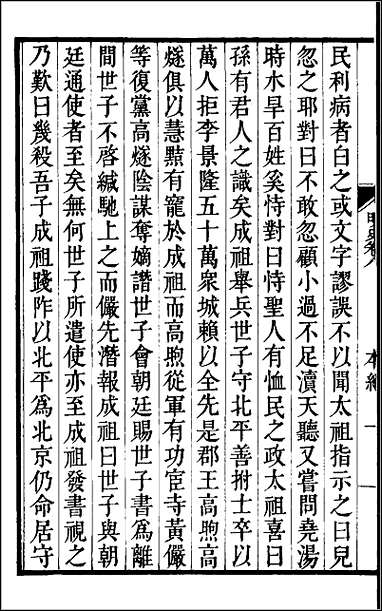 民利病者白之或文字謬誤不以聞太祖指示之曰兒
忽之耶對曰不敢忽顧小過不足瀆天聽又嘗問堯湯
時水旱百姓奚恃對曰恃聖人有恤民之政太祖喜曰
孫有君人之識矣成祖舉兵世子守北平善拊士卒以
萬人拒李景隆五十萬衆城賴以全先是郡王高煦高
燧俱以慧黠有寵於成祖而高煦從軍有功宦寺黃儼
等復黨高燧陰謀奪嫡譖世子會朝廷賜世子書爲離
間世子不啓緘馳上之而儼先潛報成祖曰世子與朝
廷通使者至矣無何世子所遣使亦至成祖發書視之
乃歎曰幾殺吾子成祖踐阼以北平爲北京仍命居守
明史卷八 本紀 一